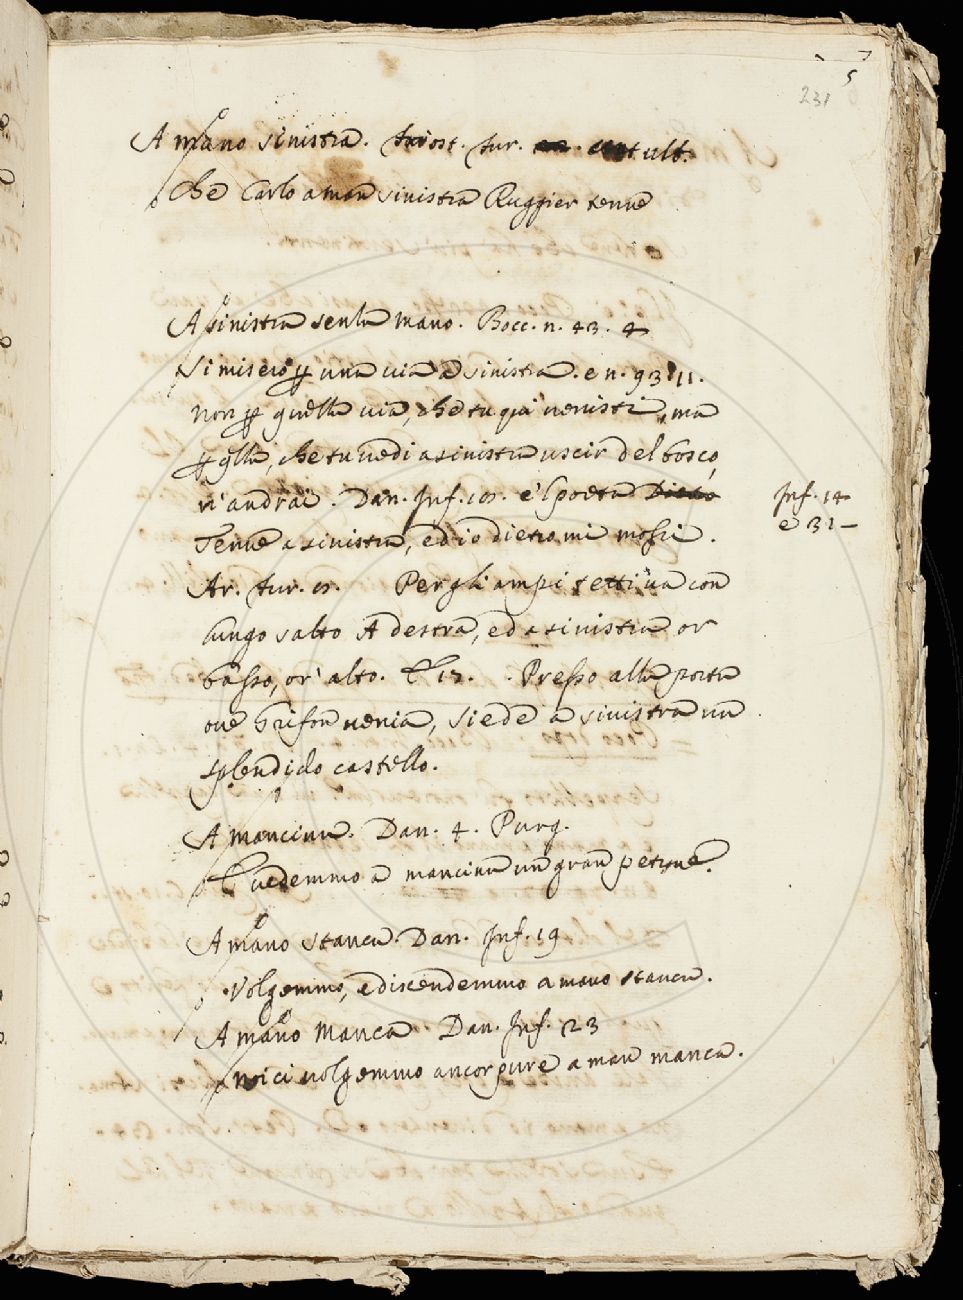 5
231
A mano sinistra. Ariost. fur. ult.
che Carlo a man sinistra Ruggier tenne
A sinistra senza mano. Bocc. n. 43. 4
Si misero p una via a sinistra. e n. 93. 11.
non p quella via, che tu qui venisti, ma
p qlla, che tu vedi a sinistra uscir del bosco,
n'andrai. Dan. Inf. 10. e'l poeta
Tenne a sinistra, ed io dietro mi mossi.
Inf. 14
e 31
Ar. fur. Per gli ampi tetti va con
lungo salto A destra, ed a sinistra or
basso, or alto. E 15. Presso alla porta
ove Grifon venia, siede a sinistra un
splendido castello.
A mancina. Dan. 4. Purg.
E vedemmo a mancina un gran petrone.
A mano stanca. Dan. Inf. 19
Volgemmo, e discendemmo a mano stanca.
A mano Manca Dan. Inf. 23
noi ci volgemmo ancor pure a man manca.